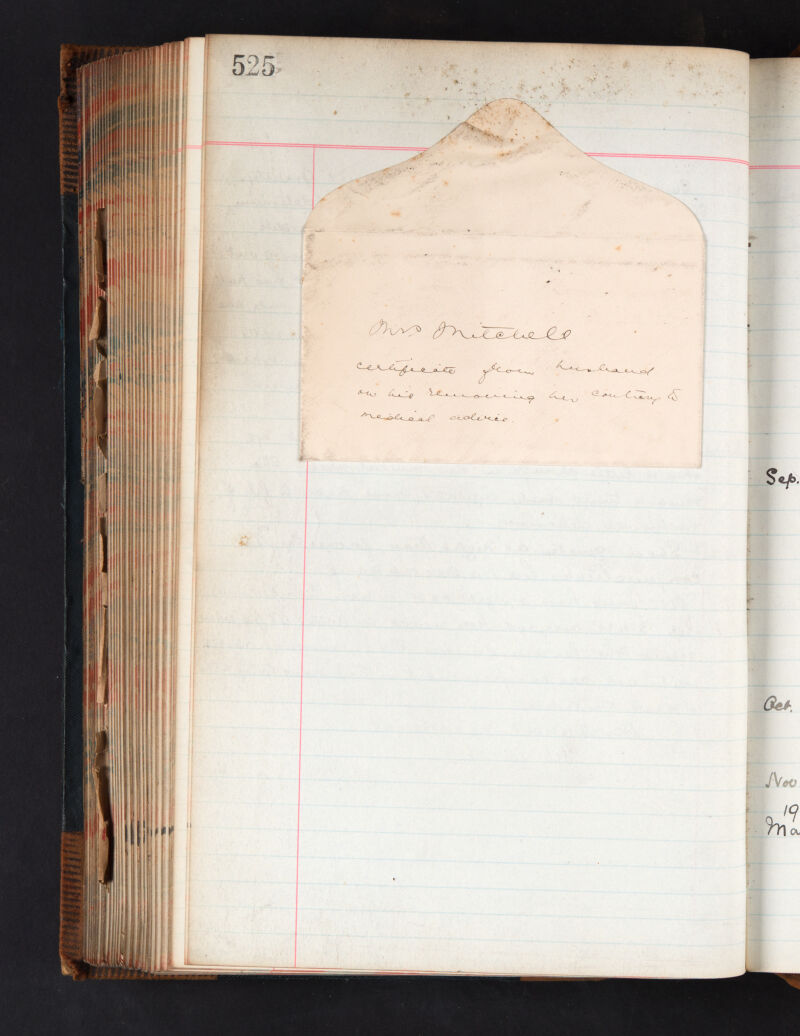 525
Mrs Mitchell
certificate from husband
on his removing her contrary to
medical advice.
Sep.
Oct.
Nov
19
Ma